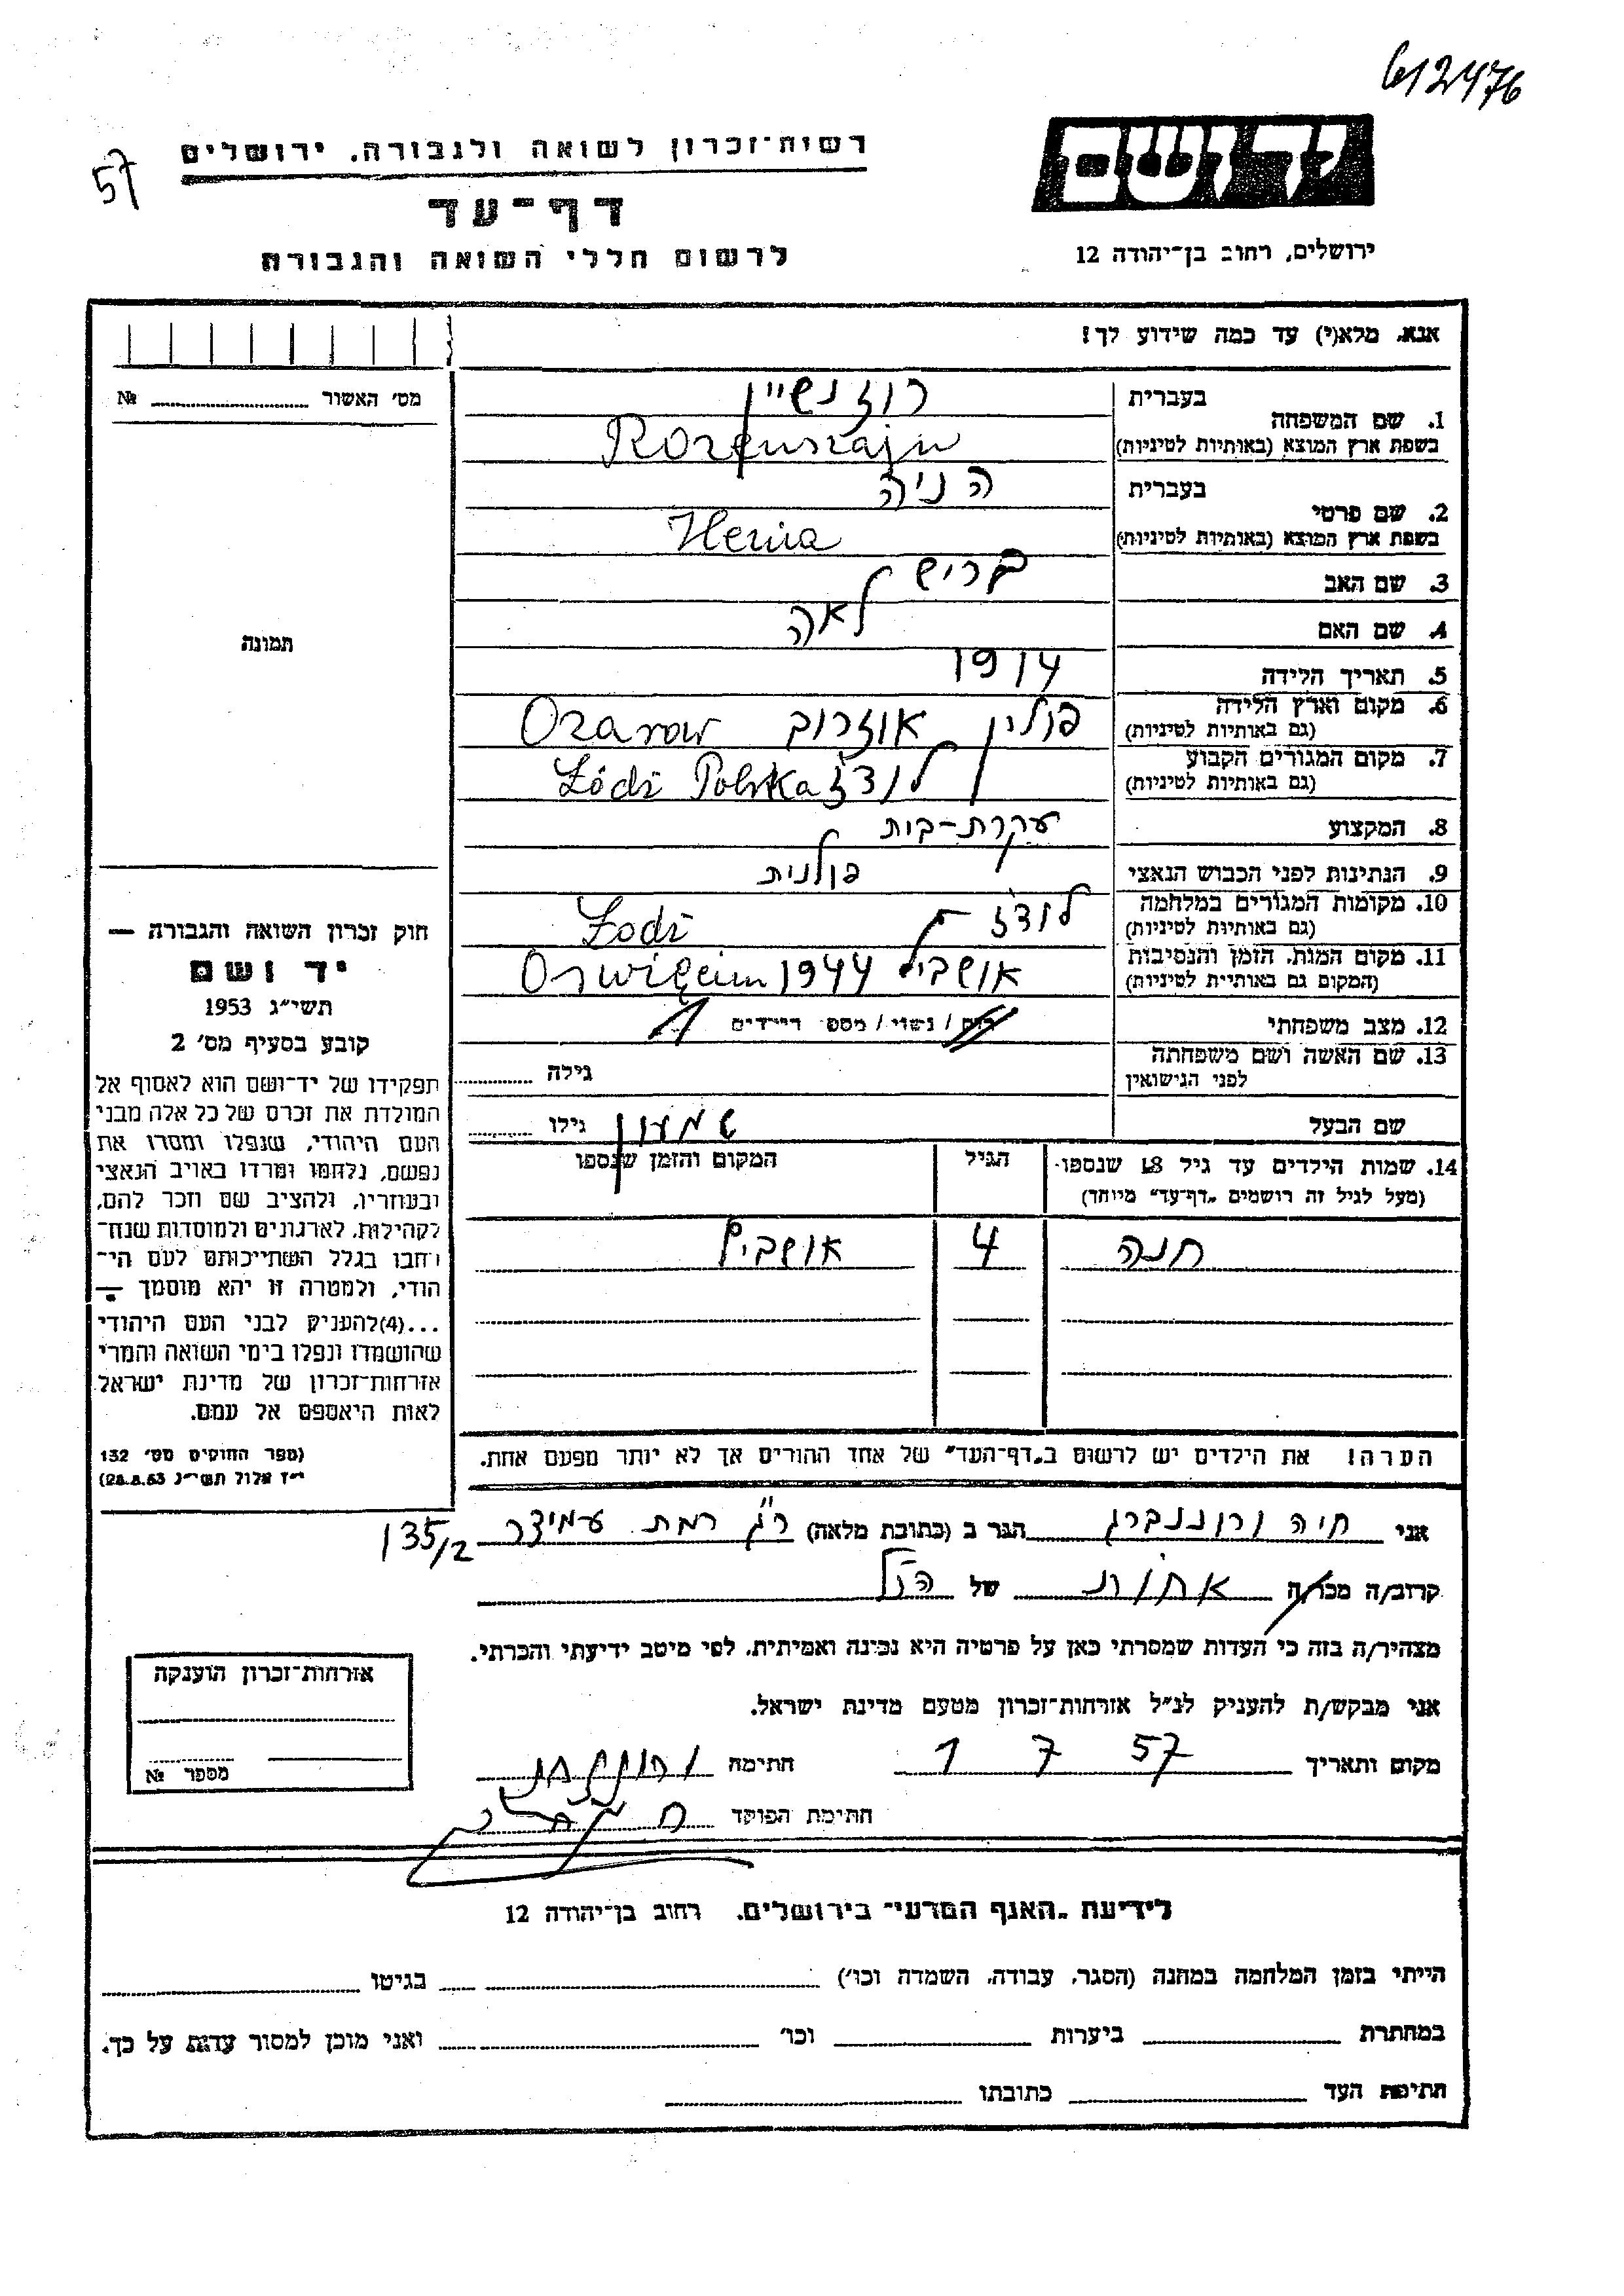 612476
רשות־זכרון לשואה ולגבורה. ירושלים
יד ושם
57
דף־עד
לרשום חללי השואה והגבורה
ירושלים, רחוב בן־יהודה 12
אנא, מלא(י) עד כמה שידוע לך!
מס׳ האשור ........ №
תמונה
בעברית
רוזנשיין
1. שם המשפחה
בשפת ארץ המוצא (באותיות לטיניות)
Rozenszajn
בעברית
הניה
2. שם פרטי
בשפת ארץ המוצא (באותיות לטיניות)
Henia
3. שם האב
בריש
4. שם האם
לאה
5. תאריך הלידה
1914
6. מקום וארץ הלידה
(גם באותיות לטיניות)
פולין אוזרוב Ozarow
7. מקום המגורים הקבוע
(גם באותיות לטיניות)
לודז Łódź Polska
8. המקצוע
עקרת-בית
9. הנתינות לפני הכבוש הנאצי
פולנית
10. מקומות המגורים במלחמה
(גם באותיות לטיניות)
לודז Łodź
11. מקום המות, הזמן והנסיבות
(המקום גם באותיות לטיניות)
1944
12. מצב משפחתי
רוק / נשוי / מספר הילדים 1
13. שם האשה ושם משפחתה
לפני הנישואין
גילה
שם הבעל
שמעון
גילו
14. שמות הילדים עד גיל 18 שנספו
(מעל לגיל זה רושמים „דף־עד״ מיוחד)
הגיל
המקום והזמן שנספו
חנה
4
הערה! את הילדים יש לרשום ב„דף־העד״ של אחד ההורים אך לא יותר מפעם אחת.
חוק זכרון השואה והגבורה —
יד ושם
תשי״ג 1953
קובע בסעיף מס׳ 2
תפקידו של יד־ושם הוא לאסוף אל
המולדת את זכרם של כל אלה מבני
העם היהודי, שנפלו ומסרו את
נפשם, נלחמו ומרדו באויב הנאצי
ובעוזריו, ולהציב שם וזכר להם,
לקהילות, לארגונים ולמוסדות שנח־
רבו בגלל השתייכותם לעם הי־
הודי, ולמטרה זו יהא מוסמך —
...(4)להעניק לבני העם היהודי
שהושמדו ונפלו בימי השואה והמרי
אזרחות־זכרון של מדינת ישראל
לאות היאספם אל עמם.
(ספר החוקים מס׳ 132
י״ז אלול תשי״ג 28.8.53)
אני חיה ורוננברג הגר ב (כתובת מלאה) ר״ג רמת עמידר 135/2
קרוב/ה מכר/ה אחות של הנ״ל
מצהיר/ה בזה כי העדות שמסרתי כאן על פרטיה היא נכונה ואמיתית, לפי מיטב ידיעתי והכרתי.
אני מבקש/ת להעניק לנ״ל אזרחות־זכרון מטעם מדינת ישראל.
מקום ותאריך 1 7 57 חתימה
חתימת הפוקד
אזרחות־זכרון הוענקה
מספר №
לידיעת „האגף המדעי״ בירושלים, רחוב בן־יהודה 12
הייתי בזמן המלחמה במחנה (הסגר, עבודה, השמדה וכו׳) בגיטו
במחתרת ביערות וכו׳ ואני מוכן למסור עדות על כך.
חתימת העד כתובתו